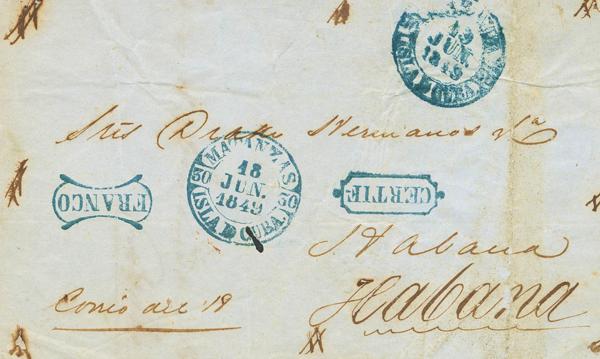 HABANA
19
JUN.
1849
ISLA DE CUBA.
Sres Drake Hermanos Ca
FRANCO
MATANZAS
18
JUN.
1849
50 50
ISLA D CUBA.
CERTIF
Habana
Habana
Correo del 18